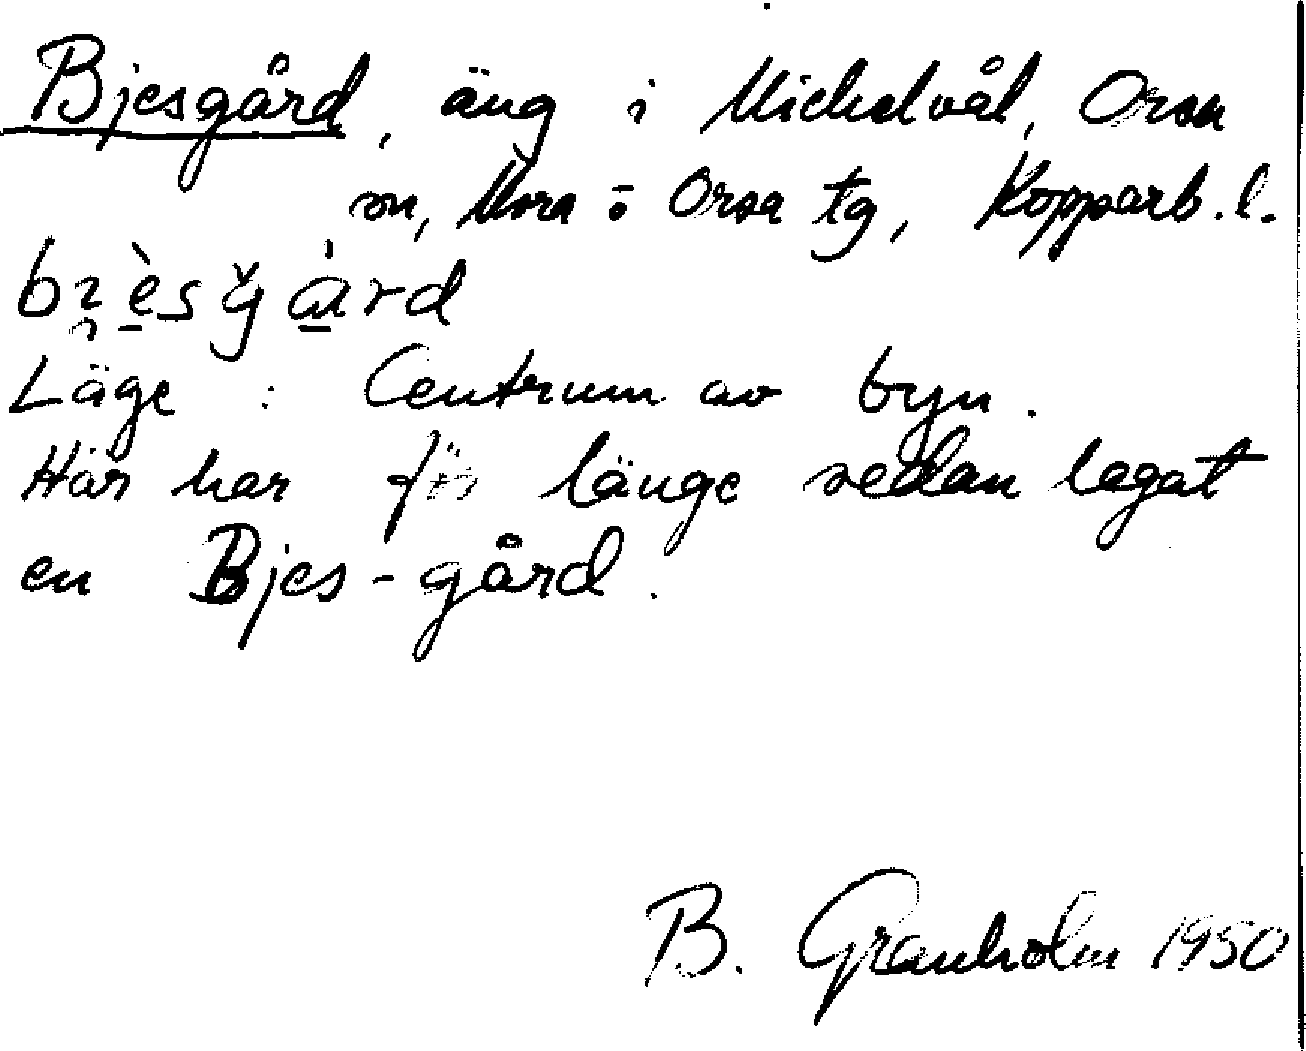 Bjesgård, äng i Michelvål, Orsa
sn, Mora ō Orsa tg, Kopparb. l.
Läge : Centrum av byn.
Här har för länge sedan legat
en Bjes-gård.
B. Granholm 1950